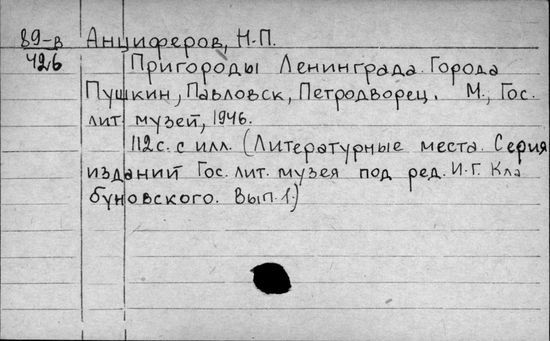 89-в Анциферов, Н.П.
426 Пригороды Ленинграда. Города
Пушкин, Павловск, Петродворец. М., Гос.
лит. музей, 1946.
112 с. с илл. (Литературные места. Серия
изданий Гос. лит. музея под ред. И.Г. Кла
буновского. Вып. 1.)